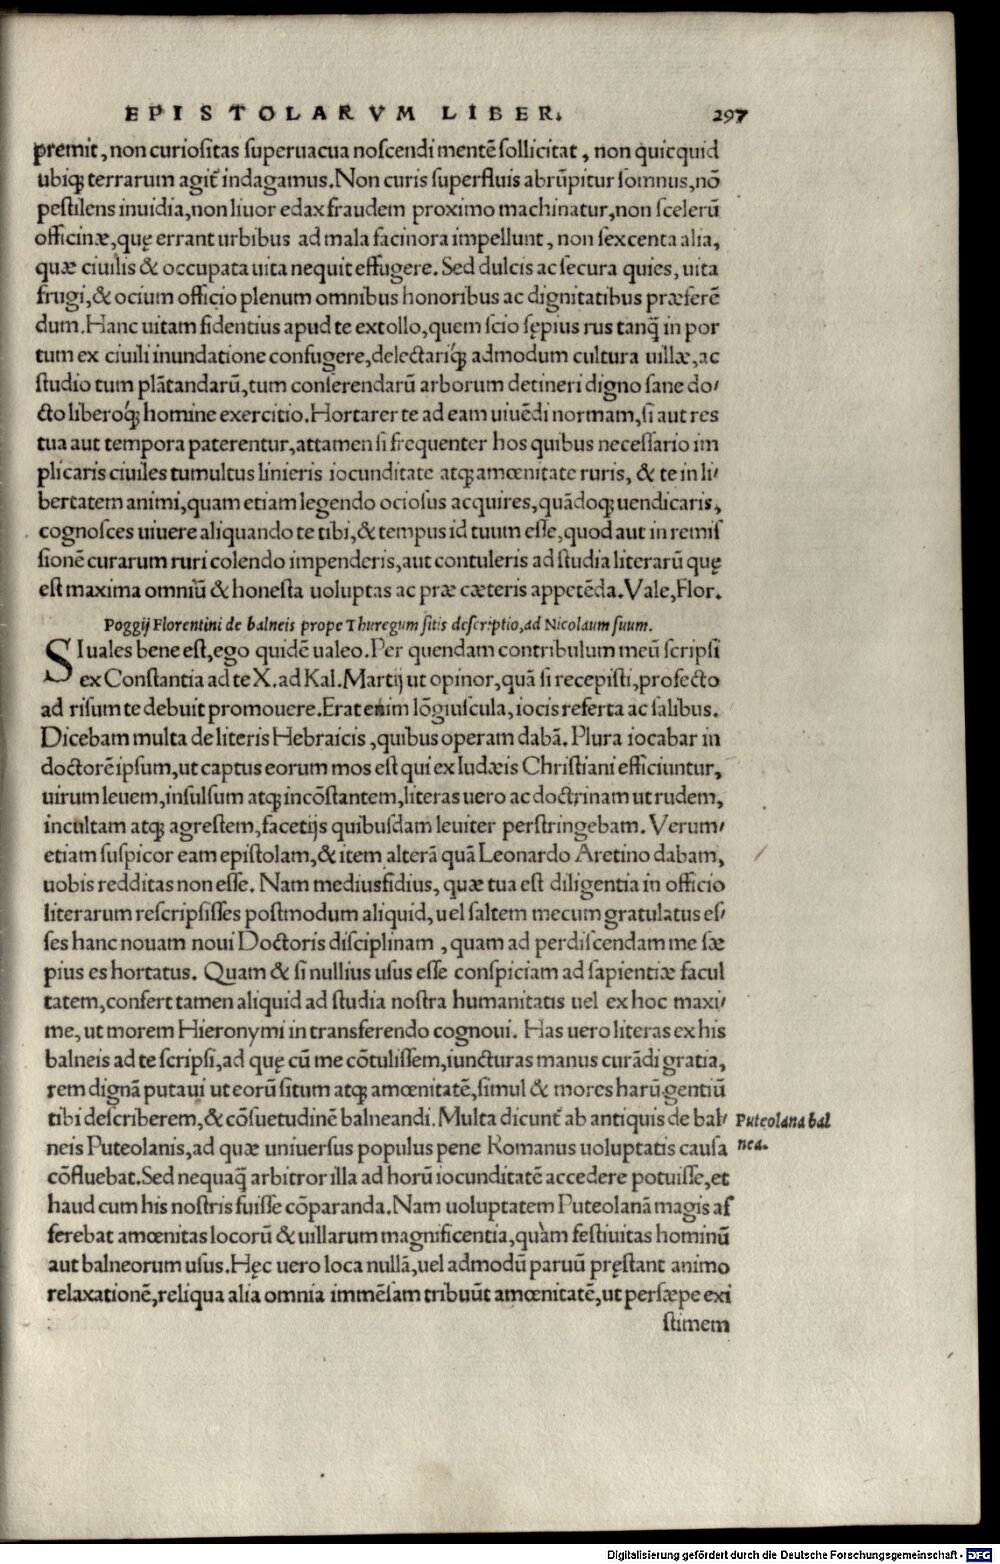 EPISTOLARVM LIBER. 297
premit, non curiositas superuacua noscendi mentē sollicitat, non quicquid
ubiqꝫ terrarum agit᷑ indagamus. Non curis superfluis abrūpitur somnus, nō
pestilens inuidia, non liuor edax fraudem proximo machinatur, non scelerū
officinæ, quę errant urbibus ad mala facinora impellunt, non sexcenta alia,
quæ ciuilis & occupata uita nequit effugere. Sed dulcis ac secura quies, uita
frugi, & ocium officio plenum omnibus honoribus ac dignitatibus præferē
dum. Hanc uitam fidentius apud te extollo, quem scio sępius rus tanq̄ in por
tum ex ciuili inundatione confugere, delectariqꝫ́ admodum cultura uillæ, ac
studio tum plātandarū, tum conserendarū arborum detineri digno sane do/
cto liberoqꝫ́ homine exercitio. Hortarer te ad eam uiuēdi normam, si aut res
tua aut tempora paterentur, attamen si frequenter hos quibus necessario im
plicaris ciuiles tumultus linieris iocunditate atqꝫ amœnitate ruris, & te in li/
bertatem animi, quam etiam legendo ociosus acquires, quādoqꝫ uendicaris,
cognosces uiuere aliquando te tibi, & tempus id tuum esse, quod aut in remis
sionē curarum ruri colendo impenderis, aut contuleris ad studia literarū quę
est maxima omniū & honesta uoluptas ac præ cæteris appetēda. Vale, Flor.
Poggij Florentini de balneis prope Thuregum sitis descriptio, ad Nicolaum suum.
SI uales bene est, ego quidē ualeo. Per quendam contribulum meū scripsi
ex Constantia ad te X. ad Kal. Martij ut opinor, quā si recepisti, profecto
ad risum te debuit promouere. Erat enim lōgiuscula, iocis referta ac salibus.
Dicebam multa de literis Hebraicis, quibus operam dabā. Plura iocabar in
doctorē ipsum, ut captus eorum mos est qui ex Iudæis Christiani efficiuntur,
uirum leuem, insulsum atqꝫ incōstantem, literas uero ac doctrinam ut rudem,
incultam atqꝫ agrestem, facetijs quibusdam leuiter perstringebam. Verum/
etiam suspicor eam epistolam, & item alterā quā Leonardo Aretino dabam,
uobis redditas non esse. Nam mediusfidius, quæ tua est diligentia in officio
literarum rescripsisses postmodum aliquid, uel saltem mecum gratulatus es/
ses hanc nouam noui Doctoris disciplinam, quam ad perdiscendam me sæ
pius es hortatus. Quam & si nullius usus esse conspiciam ad sapientiæ facul
tatem, confert tamen aliquid ad studia nostra humanitatis uel ex hoc maxi/
me, ut morem Hieronymi in transferendo cognoui. Has uero literas ex his
balneis ad te scripsi, ad quę cū me cōtulissem, iuncturas manus curādi gratia,
rem dignā putaui ut eorū situm atqꝫ amœnitatē, simul & mores harū gentiū
tibi describerem, & cōsuetudinē balneandi. Multa dicunt᷑ ab antiquis de bal/
Puteolana bal
nea.
neis Puteolanis, ad quæ uniuersus populus pene Romanus uoluptatis causa
cōfluebat. Sed nequaq̄ arbitror illa ad horū iocunditatē accedere potuisse, et
haud cum his nostris fuisse cōparanda. Nam uoluptatem Puteolanā magis af
ferebat amœnitas locorū & uillarum magnificentia, quàm festiuitas hominū
aut balneorum usus. Hęc uero loca nullā, uel admodū paruū pręstant animo
relaxationē, reliqua alia omnia immēsam tribuūt amœnitatē, ut persæpe exi
stimem
Digitalisierung gefördert durch die Deutsche Forschungsgemeinschaft - DFG